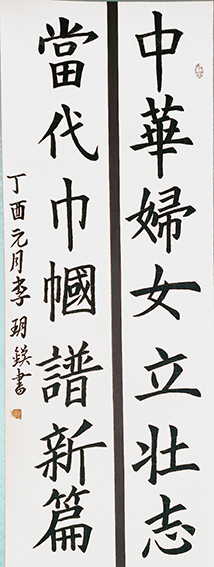 中華婦女立壯志
當代巾幗譜新篇
丁酉元月李玥鍈書